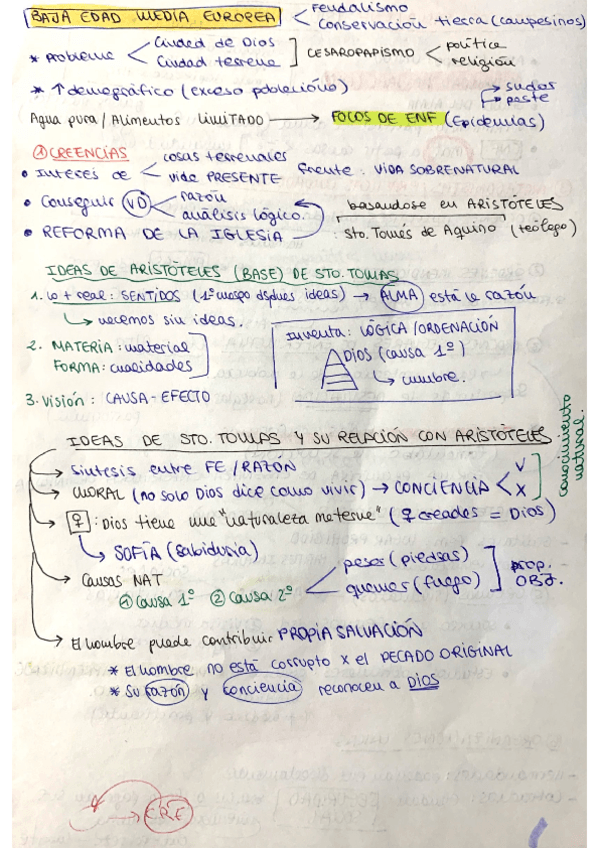 BAJA EDAD MEDIA EUROPEA < Feudalismo
Conservación tierra (campesinos)
* Problema < Ciudad de Dios
Ciudad terrena ] CESAROPAPISMO < política
religión
* ↑ demográfico (exceso poblacional) sudor
peste
Agua pura / Alimentos LIMITADO → FOCOS DE ENF (Epidemias)
① CREENCIAS
• Interés de < cosas terrenales
vida PRESENTE frente: VIDA SOBRENATURAL
• Conseguir VD < razón
análisis lógico.
basandose en ARISTÓTELES
• REFORMA DE LA IGLESIA : sto. Tomás de Aquino (teólogo)
IDEAS DE ARISTÓTELES (BASE) DE STO. TOMAS
1. lo + real: SENTIDOS (1º cuerpo dspues ideas) → ALMA está la razón
↳ nacemos sin ideas.
Inventa: LÓGICA / ORDENACIÓN
Dios (causa 1º)
↳ cumbre.
2. MATERIA: material
FORMA: cualidades
3. Visión: CAUSA - EFECTO
IDEAS DE STO. TOMAS Y SU RELACIÓN CON ARISTÓTELES
→ Síntesis entre FE / RAZON
→ MORAL (no solo Dios dice como vivir) → CONCIENCIA < V
X
conocimiento natural.
→ ♀: Dios tiene una "naturaleza materna" (♀ creadas = Dios)
↳ SOFÍA (sabiduria)
→ Causas NAT < pesar (piedras)
quemar (fuego) ] prop. OBJ.
① Causa 1º ② Causa 2º
→ El hombre puede contribuir PROPIA SALVACIÓN
* El hombre no está corrupto x el PECADO ORIGINAL
* Su razón y conciencia reconocen a DIOS
ERE